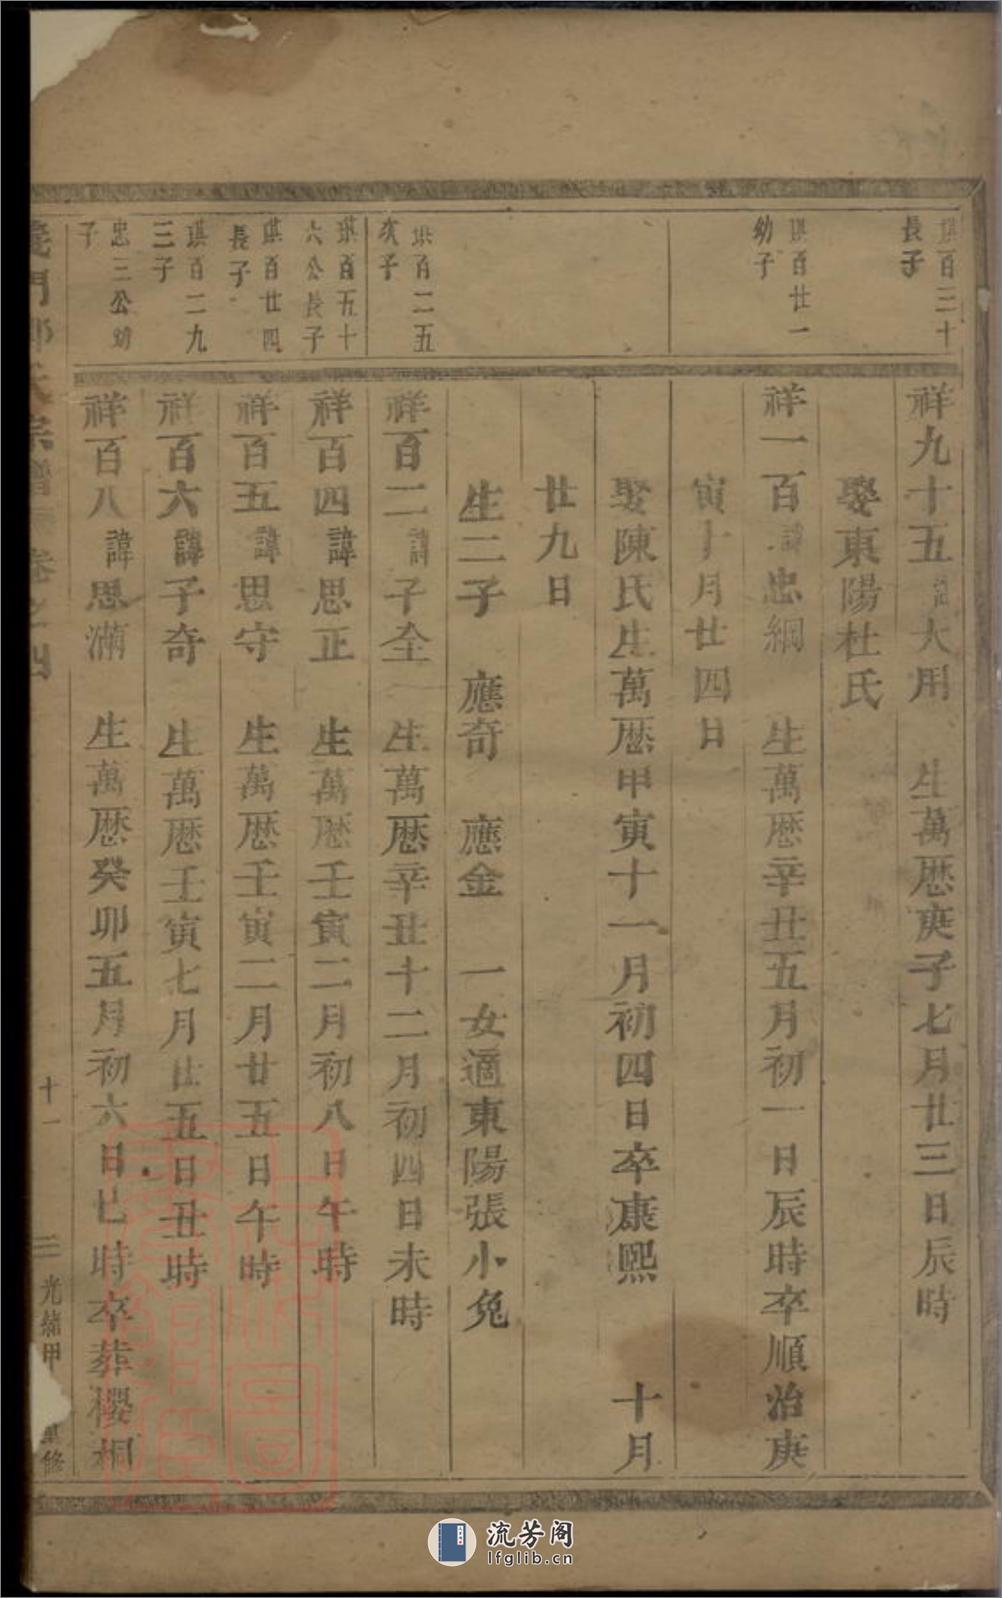 琪百三十
長子
祥九十五諱大用 生萬厯庚子七月廿三日辰時
娶東陽杜氏
琪百廿一
幼子
祥一百諱忠綱 生萬厯辛丑五月初一日辰時卒順治庚
寅十月廿四日
娶陳氏生萬厯甲寅十一月初四日卒康熙 十月
廿九日
生二子 應奇 應金 一女適東陽張小兔
琪百二五
次子
祥百二諱子全 生萬厯辛丑十二月初四日未時
琪百五十
六公長子
祥百四諱思正 生萬厯壬寅二月初八日午時
琪百廿四
長子
祥百五諱思守 生萬厯壬寅二月廿五日午時
琪百二九
三子
祥百六諱子奇 生萬厯壬寅七月廿五日丑時
忠三公幼
子
祥百八諱思滿 生萬厯癸卯五月初六日巳時卒葬櫻桐
義門鄭氏宗譜 卷之四 十一 光緒甲 重修
流芳阁
lfglib.cn